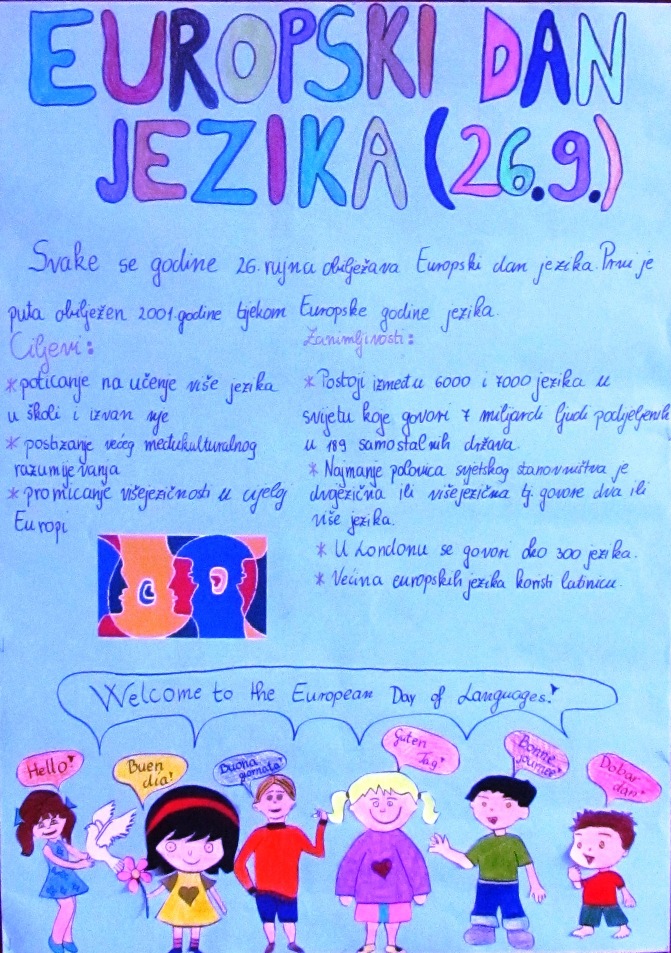 EUROPSKI DAN
JEZIKA (26.9.)
Svake se godine 26. rujna obilježava Europski dan jezika. Prvi je
puta obilježen 2001. godine tijekom Europske godine jezika.
Ciljevi:
* poticanje na učenje više jezika
u školi i izvan nje
* postizanje većeg međukulturalnog
razumijevanja
* promicanje višejezičnosti u cijeloj
Europi
Zanimljivosti:
* Postoji između 6000 i 7000 jezika u
svijetu koje govori 7 milijardi ljudi podjeljenih
u 189 samostalnih država.
* Najmanje polovica svjetskog stanovništva je
dvojezična ili višejezična tj. govore dva ili
više jezika.
* U Londonu se govori oko 300 jezika.
* Većina europskih jezika koristi latinicu.
Welcome to the European Day of Languages!
Hello!
Buen
dia!
Buona
giornata!
Guten
Tag!
Bonne
journee!
Dobar
dan!